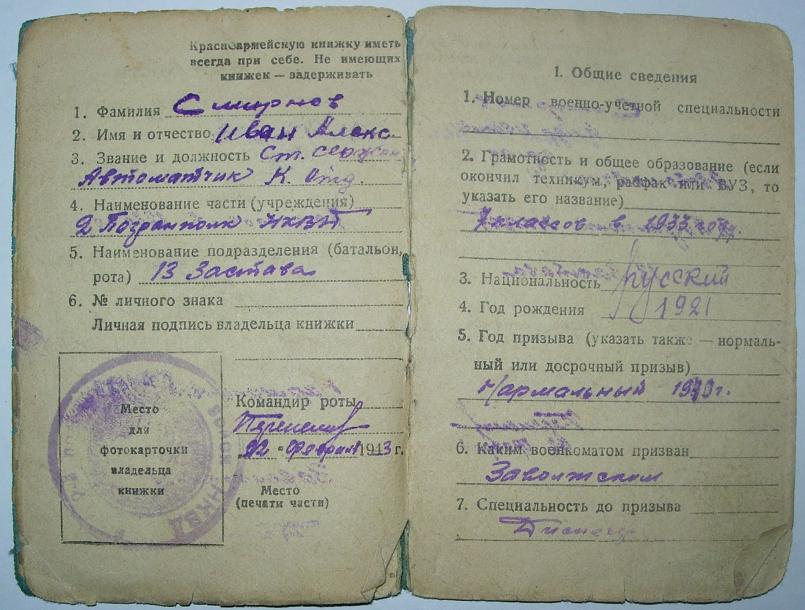 Красноармейскую книжку иметь
всегда при себе. Не имеющих
книжек — задерживать
1. Фамилия Смирнов
2. Имя и отчество Иван Алекс.
3. Звание и должность Ст. сержан
Автоматчик К. Отд.
4. Наименование части (учреждения)
2 Погранполк НКВД
5. Наименование подразделения (батальон,
рота) 13 Застава
6. № личного знака
Личная подпись владельца книжки
Место
для
фотокарточки
владельца
книжки
НКВД
Командир роты
22 " Февраля 1943 г.
Место
(печати части)
I. Общие сведения
1. Номер военно-учетной специальности
2. Грамотность и общее образование (если
окончил техникум, рабфак или ВУЗ, то
указать его название)
7 классов в 1933 году
3. Национальность русский
4. Год рождения 1921
5. Год призыва (указать также — нормаль-
ный или досрочный призыв)
Нармальный г.
6. Каким военкоматом призван
Заволжским
7. Специальность до призыва